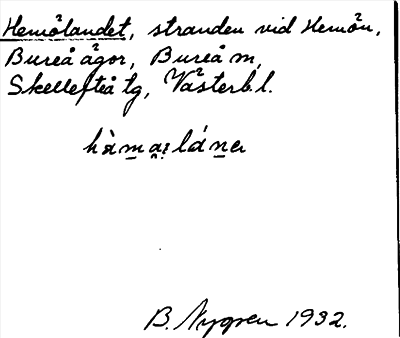 Hemölandet, stranden vid Hemön,
Bureå ägor, Bureå m,
Skellefteå tg, Västerb. l.
B. Nygren 1932.